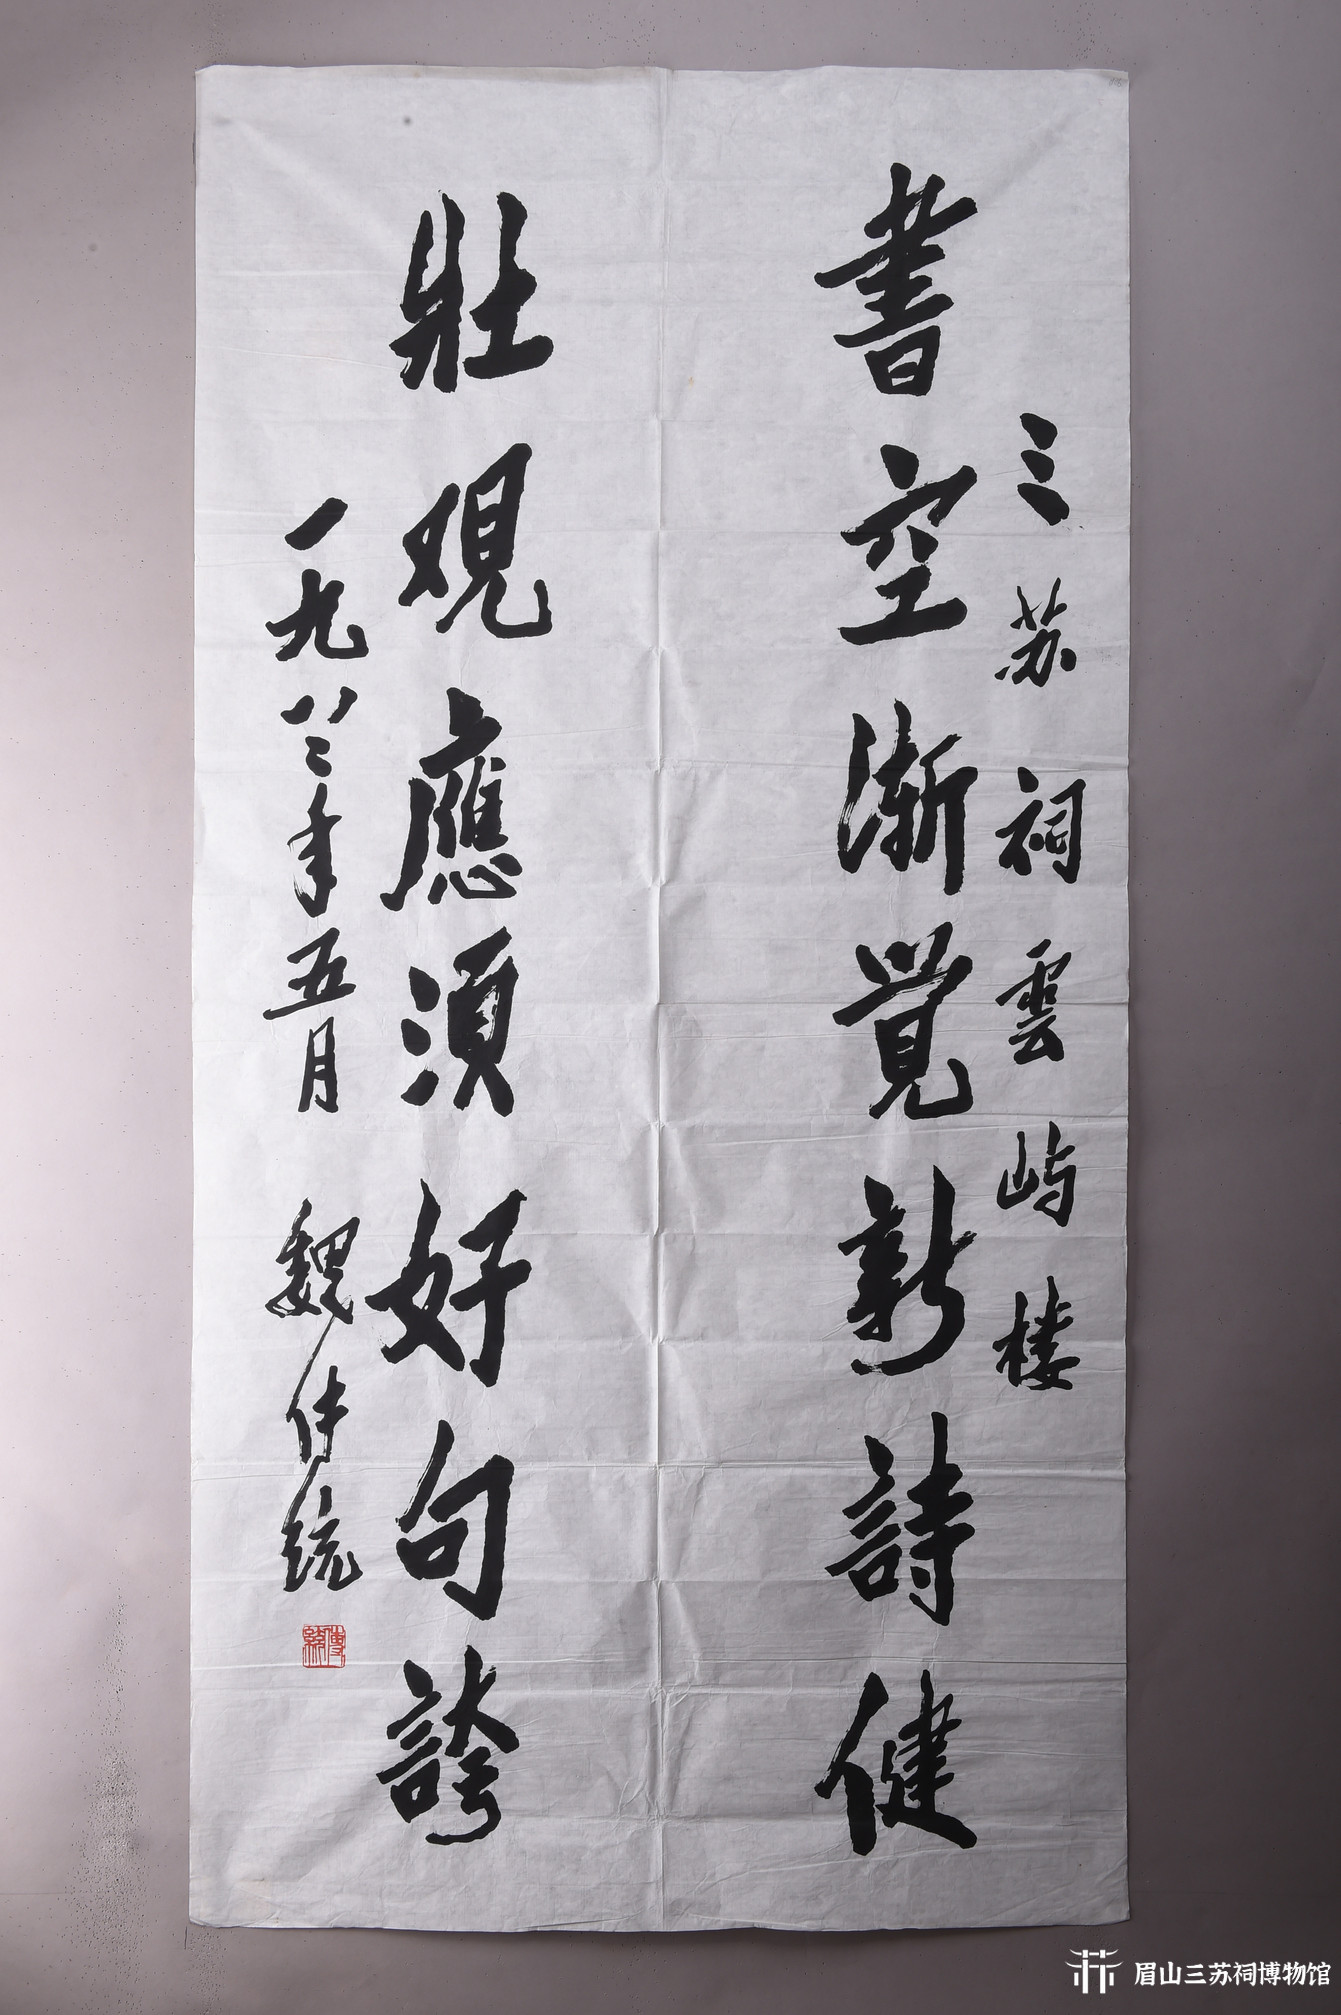 三苏祠雲屿楼
書空渐覺新詩健
壯观應須好句誇
一九八二年五月 魏传统
傳統
眉山三苏祠博物馆